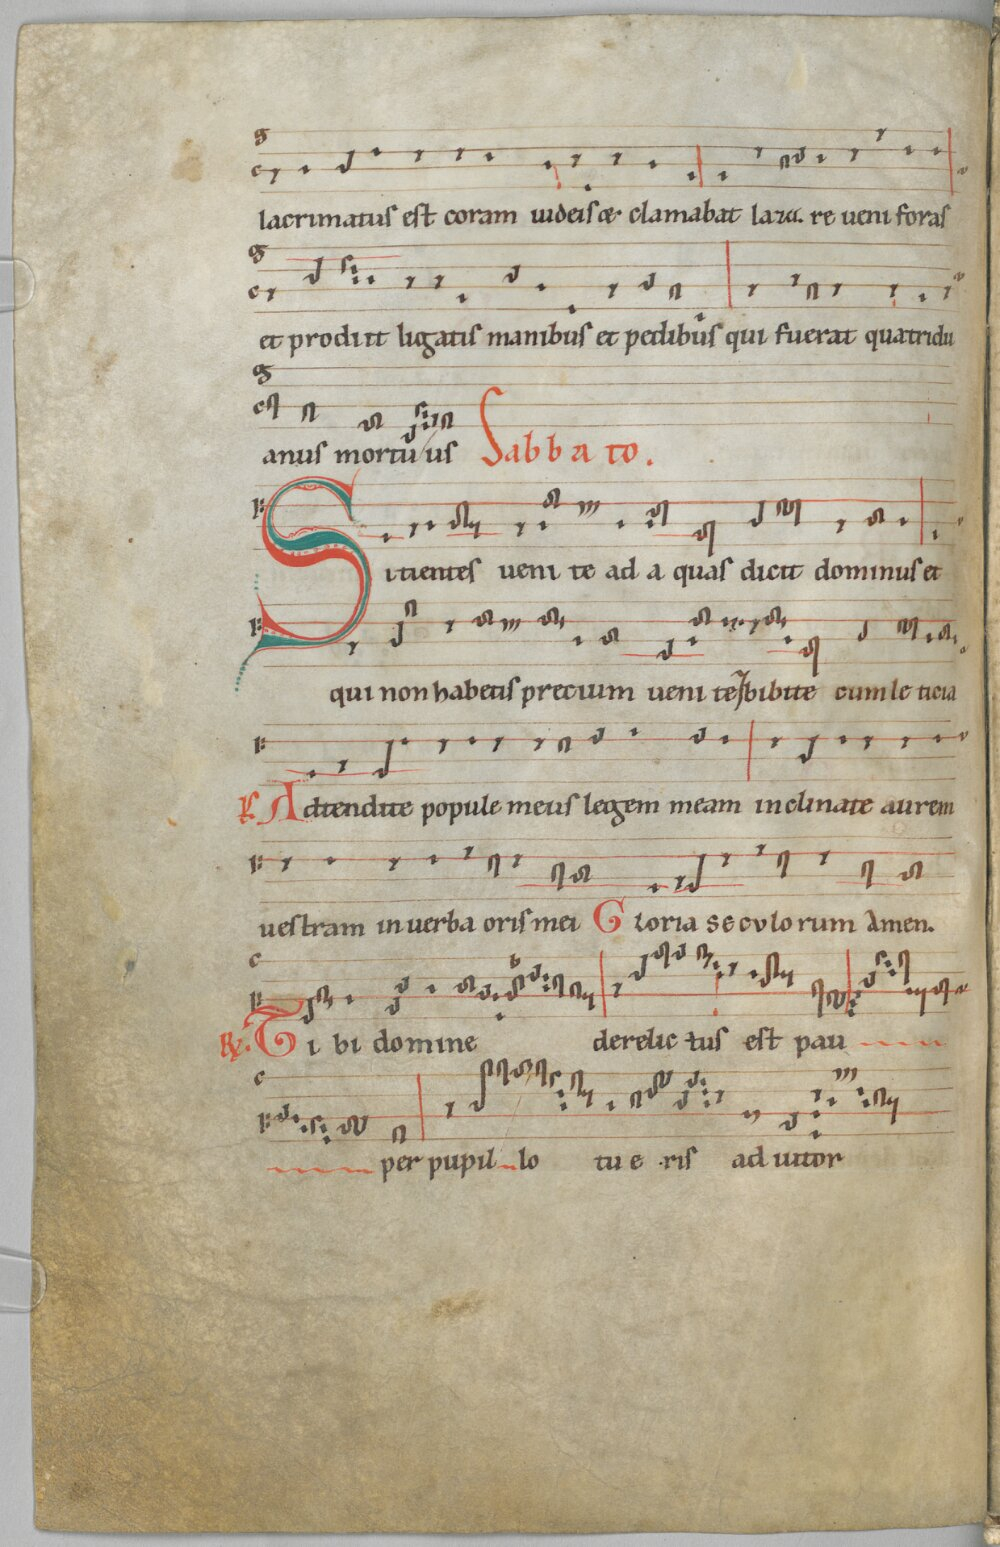 lacrimatus est coram iudeis et clamabat laza. re ueni foras
et prodiit ligatis manibus et pedibus qui fuerat quatridu
anus mortuus Sabbato.
Sitientes ueni te ad a quas dicit dominus et
qui non habetis precium ueni te bibite cum le ticia
Adtendite popule meus legem meam inclinate aurem
uestram in uerba oris mei Gloria seculorum Amen.
Tibi domine derelic tus est pau
per pupil lo tu e ris adiutor